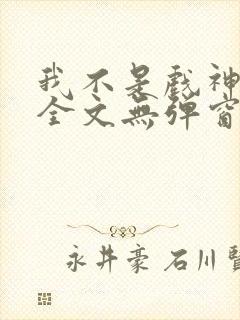 我不是戲神
全文無彈窗
永井豪 石川賢